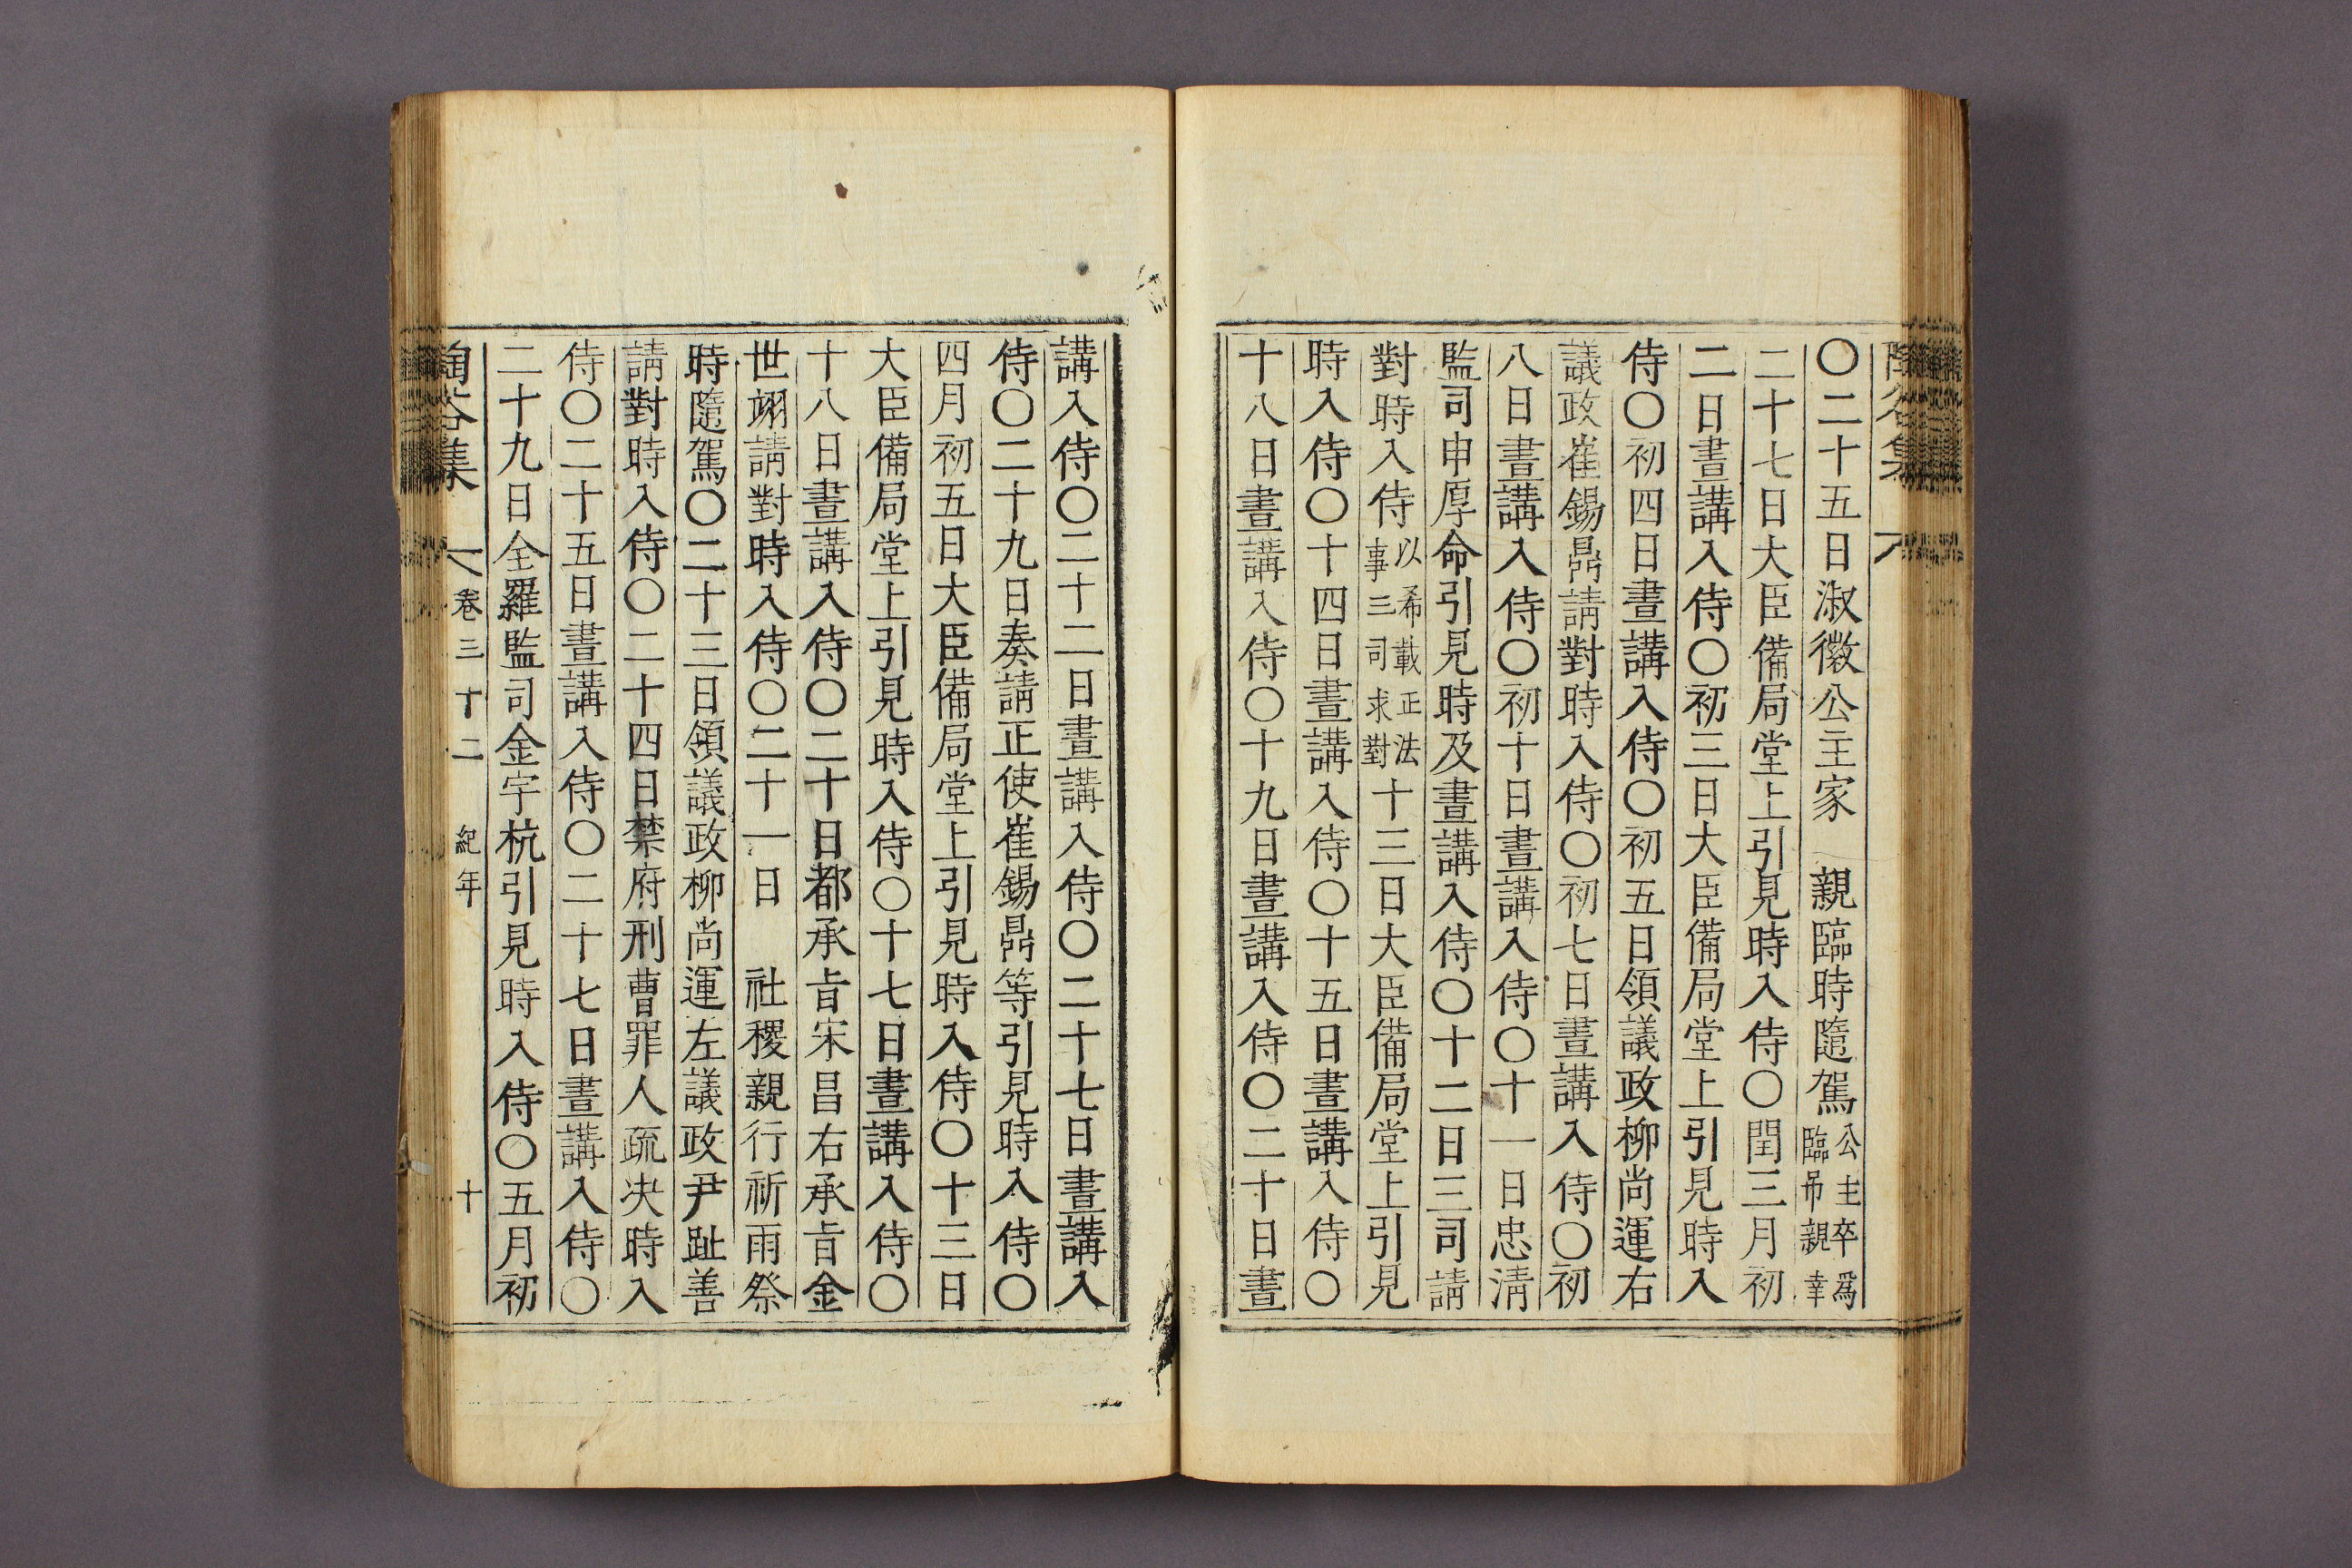 〇二十五日淑徽公主家 親臨時隨駕公主卒爲臨吊親幸
二十七日大臣備局堂上引見時入侍〇閏三月初
二日晝講入侍〇初三日大臣備局堂上引見時入
侍〇初四日晝講入侍〇初五日領議政柳尙運右
議政崔錫鼎請對時入侍〇初七日晝講入侍〇初
八日晝講入侍〇初十日晝講入侍〇十一日忠淸
監司申厚命引見時及晝講入侍〇十二日三司請
對時入侍以希載正法事三司求對十三日大臣備局堂上引見
時入侍〇十四日晝講入侍〇十五日晝講入侍〇
十八日晝講入侍〇十九日晝講入侍〇二十日晝
講入侍〇二十二日晝講入侍〇二十七日晝講入
侍〇二十九日奏請正使崔錫鼎等引見時入侍〇
四月初五日大臣備局堂上引見時入侍〇十三日
大臣備局堂上引見時入侍〇十七日晝講入侍〇
十八日晝講入侍〇二十日都承旨宋昌右承旨金
世翊請對時入侍〇二十一日 社稷親行祈雨祭
時隨駕〇二十三日領議政柳尙運左議政尹趾善
請對時入侍〇二十四日禁府刑曹罪人疏決時入
侍〇二十五日晝講入侍〇二十七日晝講入侍〇
二十九日全羅監司金宇杭引見時入侍〇五月初
陶谷集 卷三十二 紀年 十